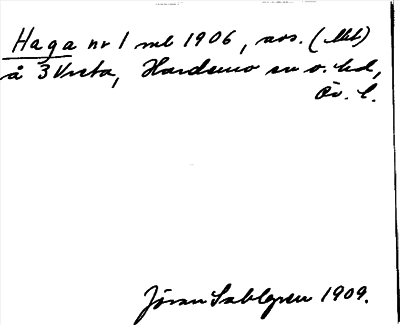 Haga nr 1 ml 1906, avs. (Mt)
å 3 Vreta, Hardemo sn o. hd,
Ör. l.
Jöran Sahlgren 1909.